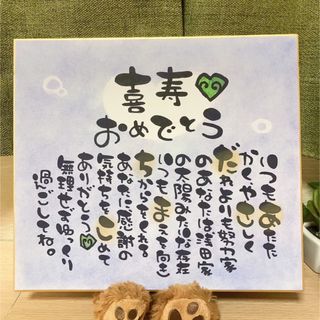 喜寿
おめでとう
いつもあたた
かくやさしく
だれよりも努力家
のあなたは浅田家
の太陽みたいな存在
いつもまえを向き
ちからをくれる
あなたに感謝の
気持ちをこめて
ありがとう
無理せずゆっくり
過ごしてね。